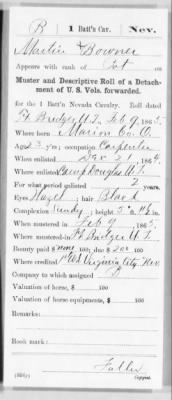 B 1 Batt'n Cav. Nev.
Martin Downer
Appears with rank of Pvt on
Muster and Descriptive Roll of a Detach-
ment of U. S. Vols. forwarded.
for the 1 Batt'n Nevada Cavalry. Roll dated
Ft. Bridger U.T. Feb 9, 1865.
Where born Marion Co. O.
Age 23 y'rs; occupation Carpenter
When enlisted Dec 21, 1864.
Where enlisted Camp Douglas U.T.
For what period enlisted 2 years.
Eyes Hazel; hair Black
Complexion Sandy; height 5 ft. in.
When mustered in Feb 9, 1865.
Where mustered in Ft Bridger U.T.
Bounty paid $ none 100; due $ 200 100
Where credited Virginia City Nev
Company to which assigned B
Valuation of horse, $ 100
Valuation of horse equipments, $ 100
Remarks:
Book mark:
Fuller
(339) Copyist.